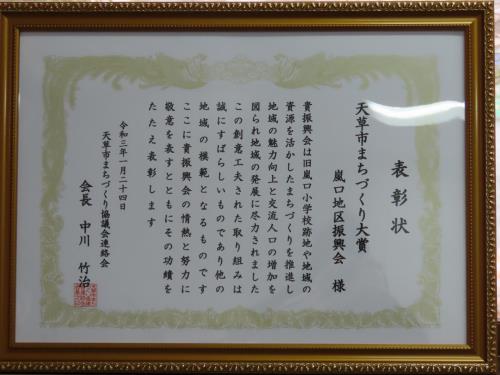 表彰状
天草市まちづくり大賞
嵐口地区振興会 様
貴振興会は旧嵐口小学校跡地や地域の
資源を活かしたまちづくりを推進し
地域の魅力向上と交流人口の増加を
図られ地域の発展に尽力されました
この創意工夫された取り組みは
誠にすばらしいものであり他の
地域の模範となるものです
ここに貴振興会の情熱と努力に
敬意を表すとともにその功績を
たたえ表彰します
令和三年一月二十四日
天草市まちづくり協議会連絡会
会長 中川 竹治